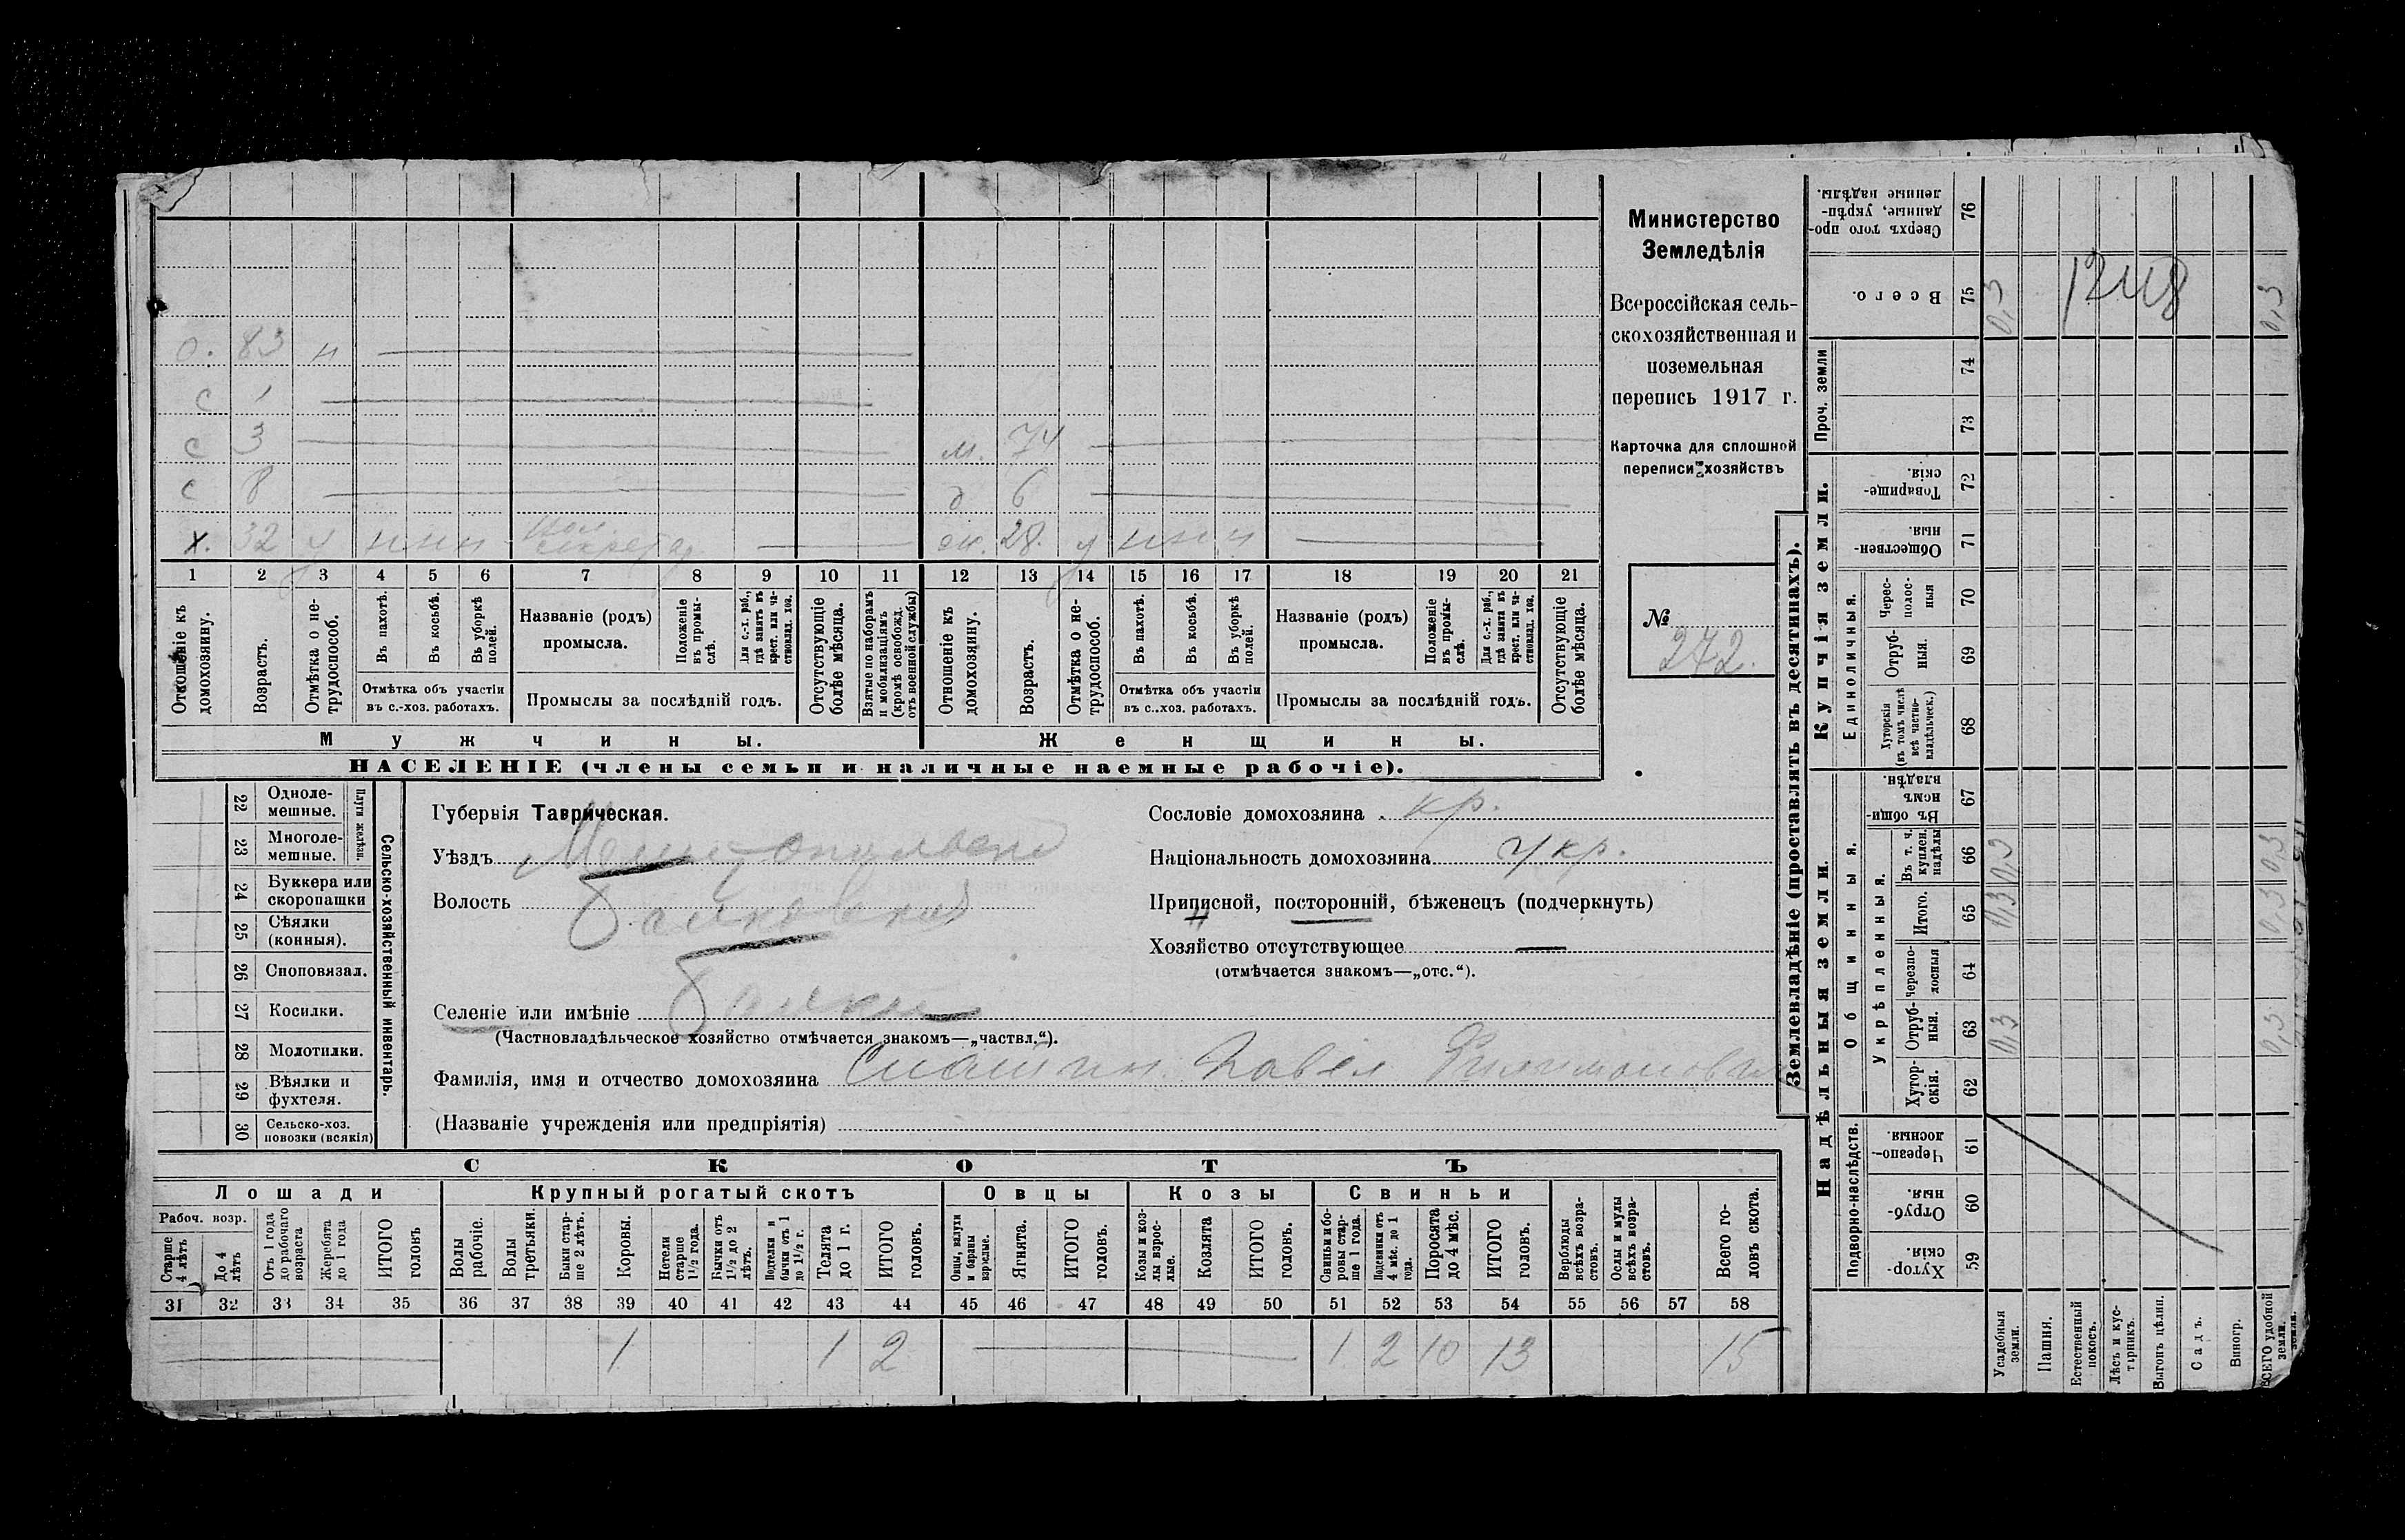 О. 83 н
С 1
С 3 м. 74
С 8 д 6
х. 32 у н н н жен. 28. у н н н
1 2 3 4 5 6 7 8 9 10 11 12 13 14 15 16 17 18 19 20 21
Отношеніе къ домохозяину.
Возрастъ.
Отмѣтка о нетрудоспособ.
Въ пахотѣ.
Въ косьбѣ.
Въ уборкѣ полей.
Отмѣтка объ участіи
въ с.-хоз. работахъ.
Названіе (родъ)
промысла.
Положеніе въ промыслѣ.
Для с.-х. раб., гдѣ занятъ въ крест. или частновлад. хоз.
Промыслы за послѣдній годъ.
Отсутствующіе болѣе мѣсяца.
Взятые по наборамъ и мобилизаціямъ (кромѣ освобожд. отъ военной службы)
Отношеніе къ домохозяину.
Возрастъ.
Отмѣтка о нетрудоспособ.
Въ пахотѣ.
Въ косьбѣ.
Въ уборкѣ полей.
Отмѣтка объ участіи
въ с..хоз. работахъ.
Названіе (родъ)
промысла.
Положеніе въ промыслѣ.
Для с.-х. раб., гдѣ занята въ крест. или частновлад. хоз.
Промыслы за послѣдній годъ.
Отсутствующіе болѣе мѣсяца.
Мужчины.
Женщины.
НАСЕЛЕНІЕ (члены семьи и наличные наемные рабочіе).
Министерство
Земледѣлія
Всероссійская сель-
скохозяйственная и
поземельная
перепись 1917 г.
Карточка для сплошной
переписи хозяйствъ
№
272.
22 Однолемешные.
23 Многолемешные.
Плуги желѣзн.
24 Буккера или скоропашки
25 Сѣялки (конныя).
26 Споповязал.
27 Косилки.
28 Молотилки.
29 Вѣялки и фухтеля.
30 Сельско-хоз. повозки (всякія)
Сельско-хозяйственный инвентарь.
Губернія Таврическая.
Уѣздъ Мелитопольскій
Волость Балковская
Селеніе или имѣніе Балки
(Частновладѣльческое хозяйство отмѣчается знакомъ—„частвл.“).
Фамилія, имя и отчество домохозяина Павел Филимонович
(Названіе учрежденія или предпріятія)
Сословіе домохозяина кр.
Національность домохозяина укр.
Приписной, посторонній, бѣженецъ (подчеркнуть)
Хозяйство отсутствующее —
(отмѣчается знакомъ—„отс.“).
СКОТЪ
Лошади
Крупный рогатый скотъ
Овцы
Козы
Свиньи
Рабоч. возр.
Старше 4 лѣтъ
До 4 лѣтъ
Отъ 1 года до рабочаго возраста
Жеребята до 1 года
ИТОГО головъ
Волы рабочіе.
Волы третьяки.
Быки старше 2 лѣтъ.
Коровы.
Нетели старше 1½ года.
Бычки отъ 1½ до 2 лѣтъ.
Подтелки и бычки отъ 1 до 1½ г.
Телята до 1 г.
ИТОГО головъ.
Овцы, валухи и бараны взрослые.
Ягнята.
ИТОГО головъ.
Козы и козлы взрослые.
Козлята
ИТОГО головъ.
Свиньи и боровы старше 1 года.
Подсвинки отъ 4 мѣс. до 1 года.
Поросята до 4 мѣс.
ИТОГО головъ.
Верблюды всѣхъ возрастовъ.
Ослы и мулы всѣхъ возрастовъ.
Всего головъ скота.
31 32 33 34 35 36 37 38 39 40 41 42 43 44 45 46 47 48 49 50 51 52 53 54 55 56 57 58
1 1 2 1 2 10 13 15
Землевладѣніе (проставлять въ десятинахъ).
Надѣльныя земли.
Купчія земли.
Проч. земли
Сверхъ того проданные, укрѣпленные надѣлы. 76
Всего. 75
74
73
Товарищескія. 72
Общественныя. 71
Единоличныя.
Черес-полосныя 70
Отрубныя. 69
Хуторскія (въ томъ числѣ всѣ частновладѣльческ.) 68
Общинныя.
Въ общинномъ владѣн. 67
Укрѣпленныя.
Въ т. ч. куплен. надѣлы 66
Итого. 65
Черезполосныя 64
Отрубныя. 63
Хуторскія. 62
Подворно-наслѣдств.
Черезполосныя. 61
Отрубныя. 60
Хуторскія. 59
Усадебныя земли.
Пашня.
Естественный покосъ.
Лѣсъ и кустарникъ.
Выгонъ цѣлин.
Садъ.
Виногр.
ВСЕГО удобной земли.
0,3 0,3 0,3 0,3
1248
0,3 0,3 0,3 0,3